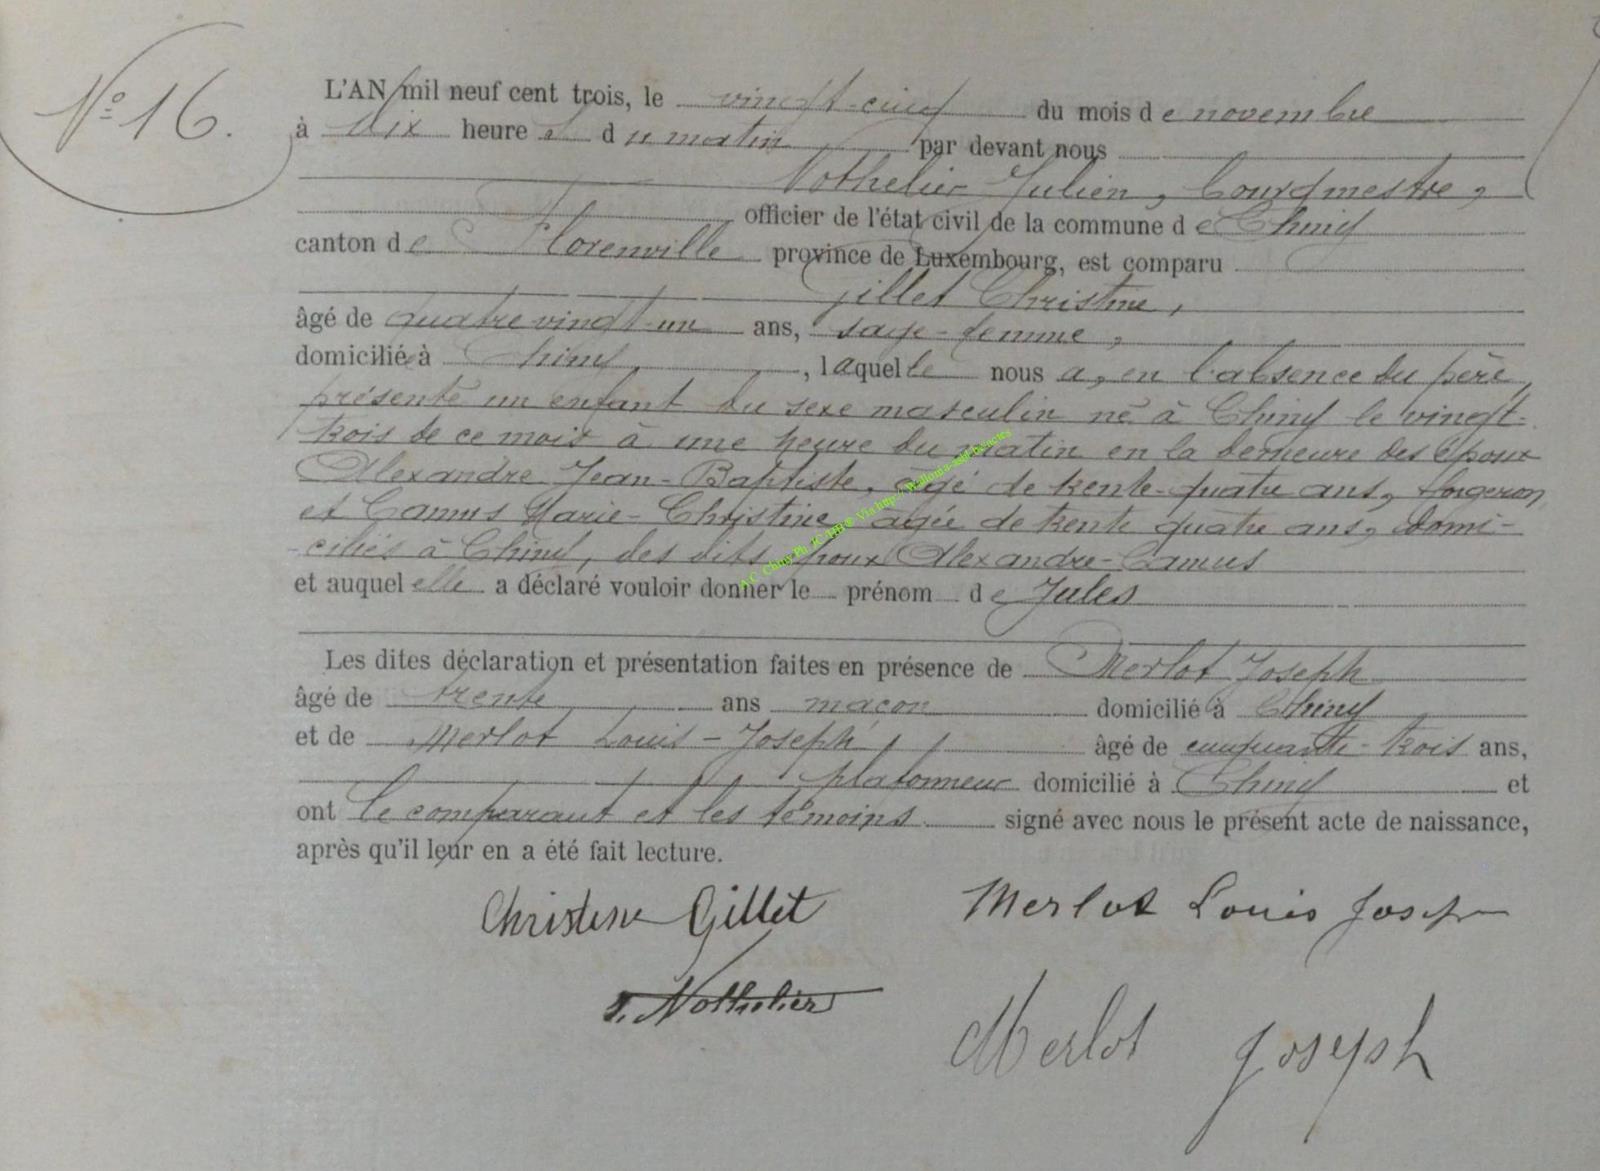 N° 16.
L'AN mil neuf cent trois, le vingt-cinq du mois de novembre
à dix heures du matin par devant nous
Nothelier Julien, Bourgmestre,
officier de l'état civil de la commune de Chiny
canton de Florenville province de Luxembourg, est comparu
Gillet Christine,
âgé de quatre vingt-un ans, sage-femme,
domiciliée à Chiny, laquelle nous a, en l'absence du père,
présenté un enfant du sexe masculin né à Chiny le vingt-
trois de ce mois à une heure du matin en la demeure des époux
Alexandre Jean-Baptiste, âgé de trente-quatre ans, forgeron,
et Camus Marie-Christine, agée de trente quatre ans, domi-
ciliés à Chiny, des dits époux Alexandre-Camus
et auquel elle a déclaré vouloir donner le prénom de Jules
Les dites déclaration et présentation faites en présence de Merlot Joseph
âgé de trente ans maçon domicilié à Chiny
et de Merlot Louis-Joseph âgé de cinquante-trois ans,
plafonneur domicilié à Chiny et
ont le comparant et les témoins signé avec nous le présent acte de naissance,
après qu'il leur en a été fait lecture.
Christine Gillet Merlot Louis Joseph
J. Nothelier
Merlot Joseph
A.C. Chiny Ph. JCAHH® Via http://Wallonia-asbl-be/actes